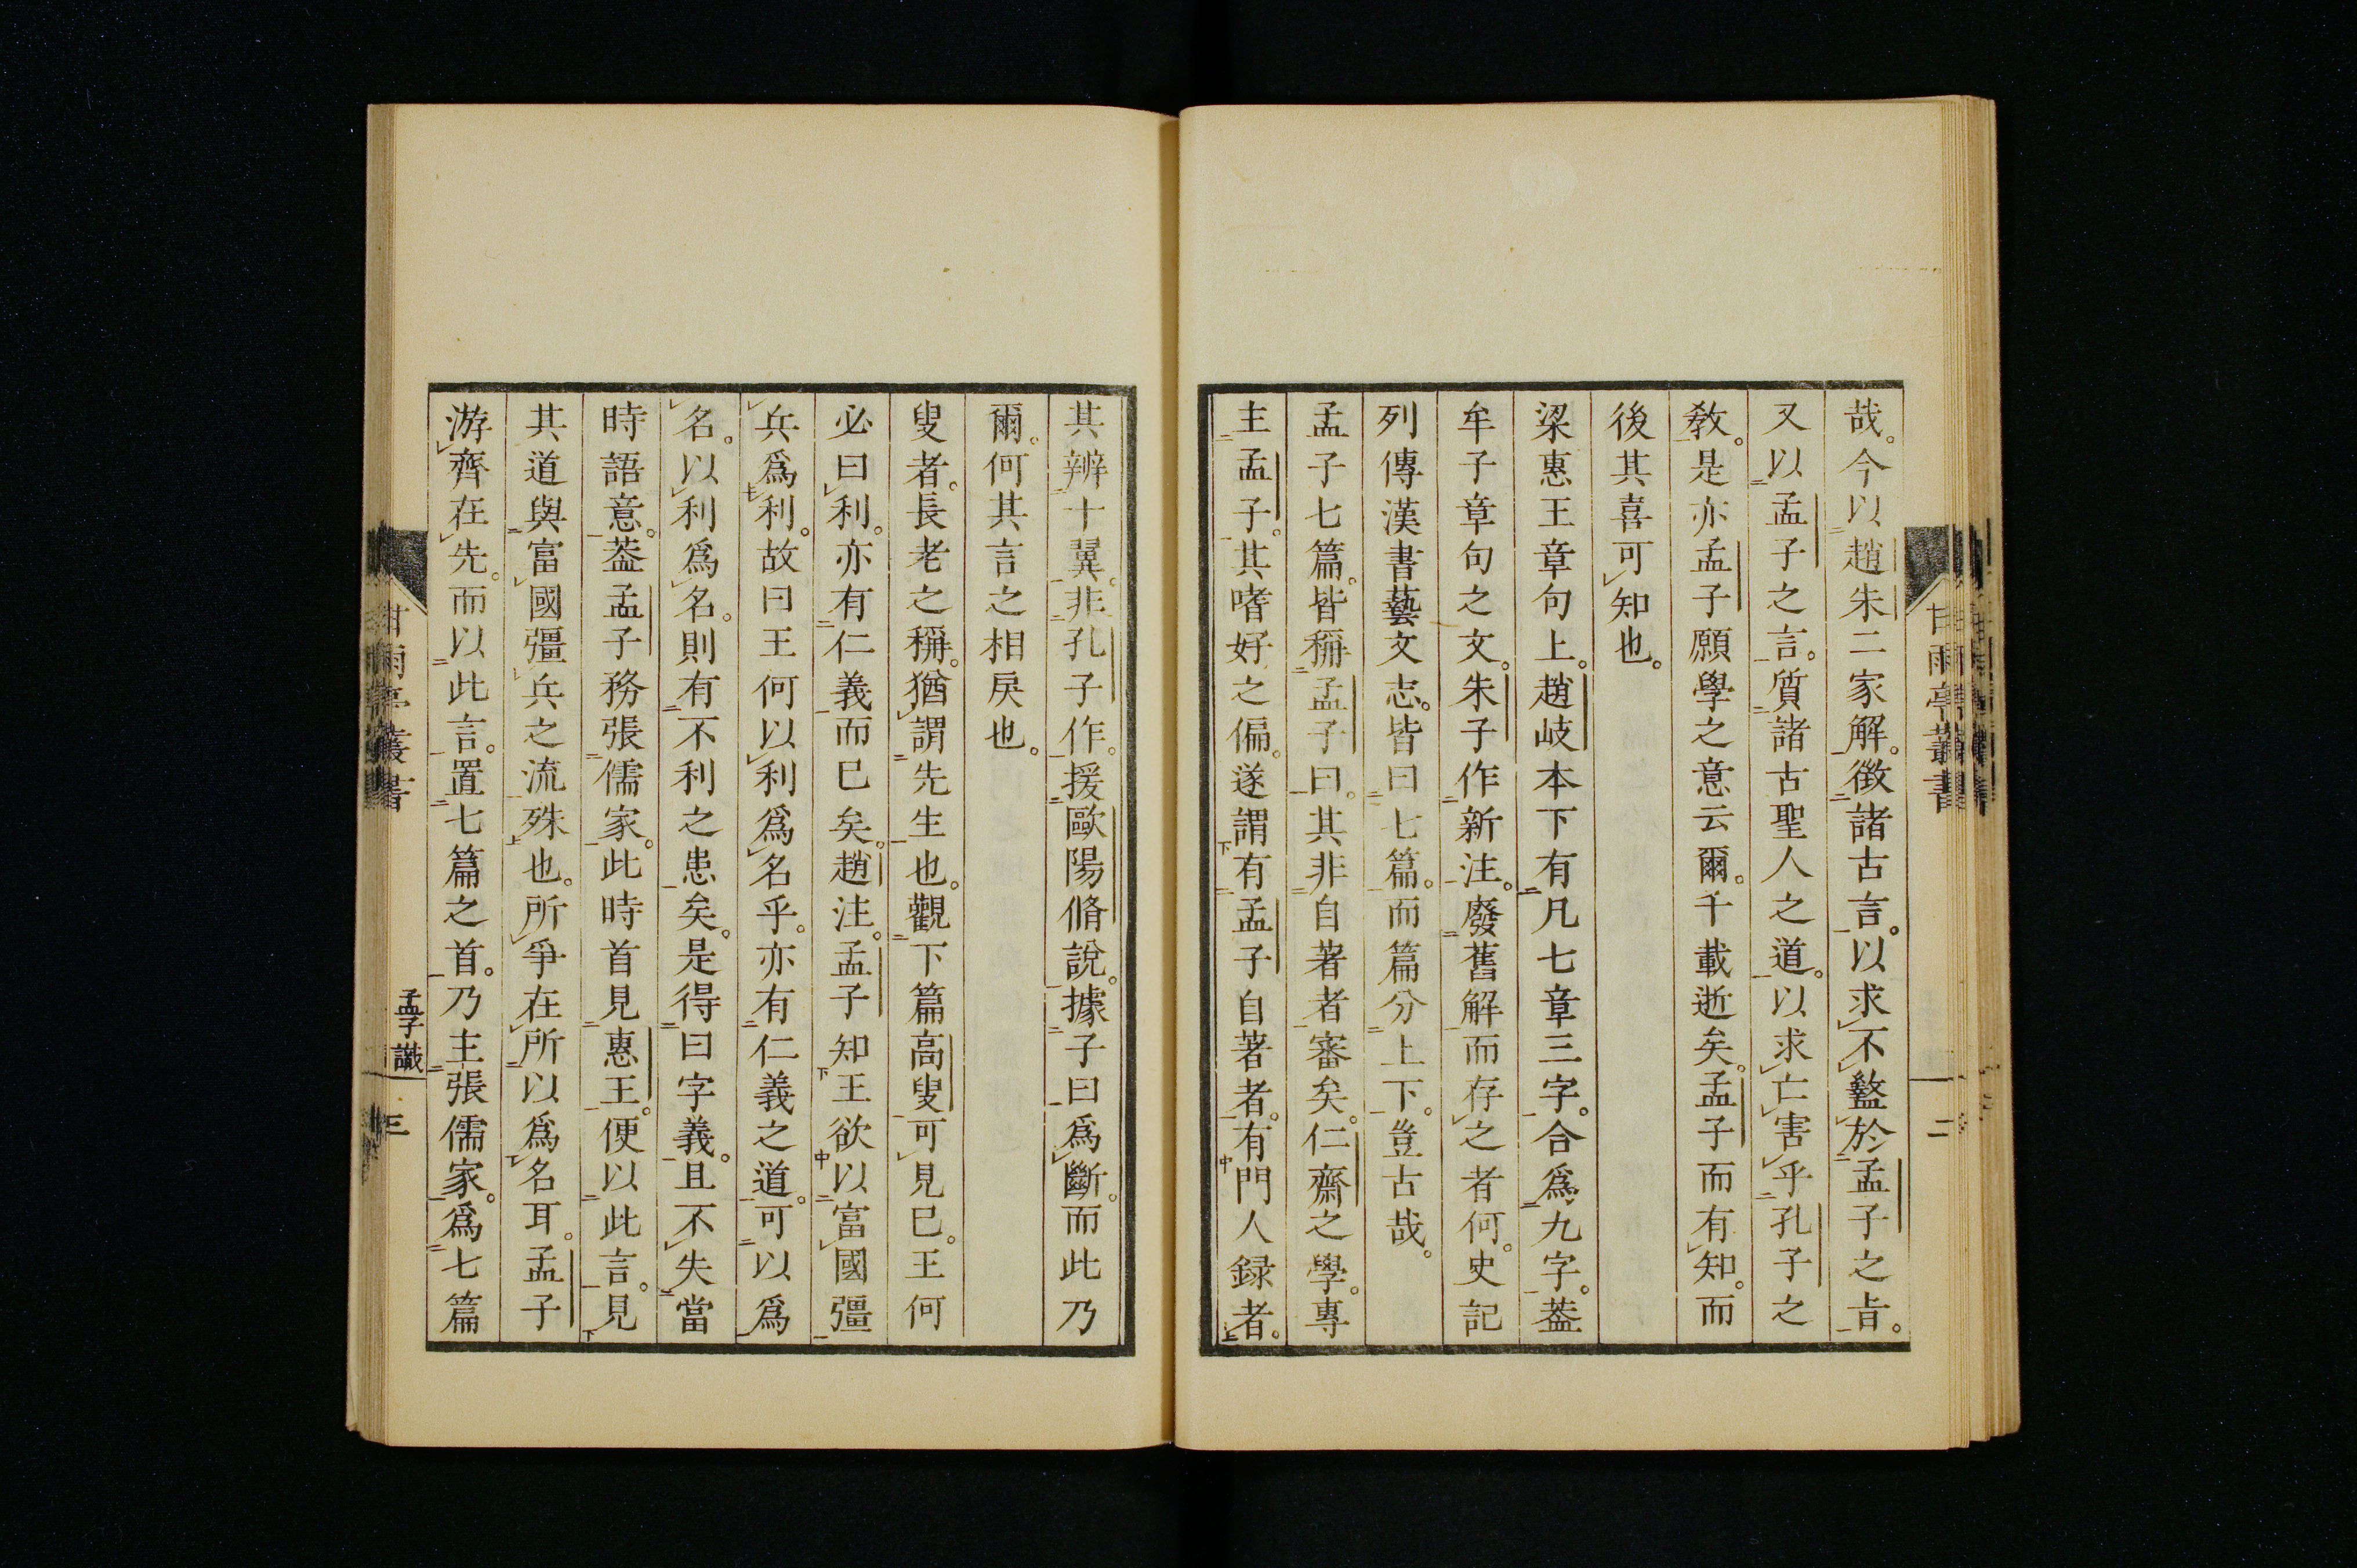 哉。今以趙朱二家解。徴諸古言。以求不盭於孟子之旨。
又以孟子之言。質諸古聖人之道。以求亡害乎孔子之
教。是亦孟子願學之意云爾。千載逝矣。孟子而有知。而
後其喜可知也。
梁惠王章句上。趙岐本下有凡七章三字。合爲九字。葢
牟子章句之文。朱子作新注。廢舊解而存之者何。史記
列傳漢書藝文志。皆曰七篇。而篇分上下。豈古哉。
孟子七篇。皆稱孟子曰。其非自著者審矣。仁齋之學。專
主孟子。其嗜好之偏。遂謂有孟子自著者。有門人録者。
甘雨亭叢書
二
其辨十翼。非孔子作。援歐陽脩說。據子曰爲斷。而此乃
爾。何其言之相戾也。
叟者。長老之稱。猶謂先生也。觀下篇高叟可見已。王何
必曰利。亦有仁義而已矣。趙注。孟子知王欲以富國彊
兵爲利。故曰王何以利爲名乎。亦有仁義之道。可以爲
名。以利爲名。則有不利之患矣。是得曰字義。且不失當
時語意。葢孟子務張儒家。此時首見惠王。便以此言。見
其道與富國彊兵之流殊也。所爭在所以爲名耳。孟子
游齊在先。而以此言。置七篇之首。乃主張儒家。爲七篇
甘雨亭叢書
孟子識
三